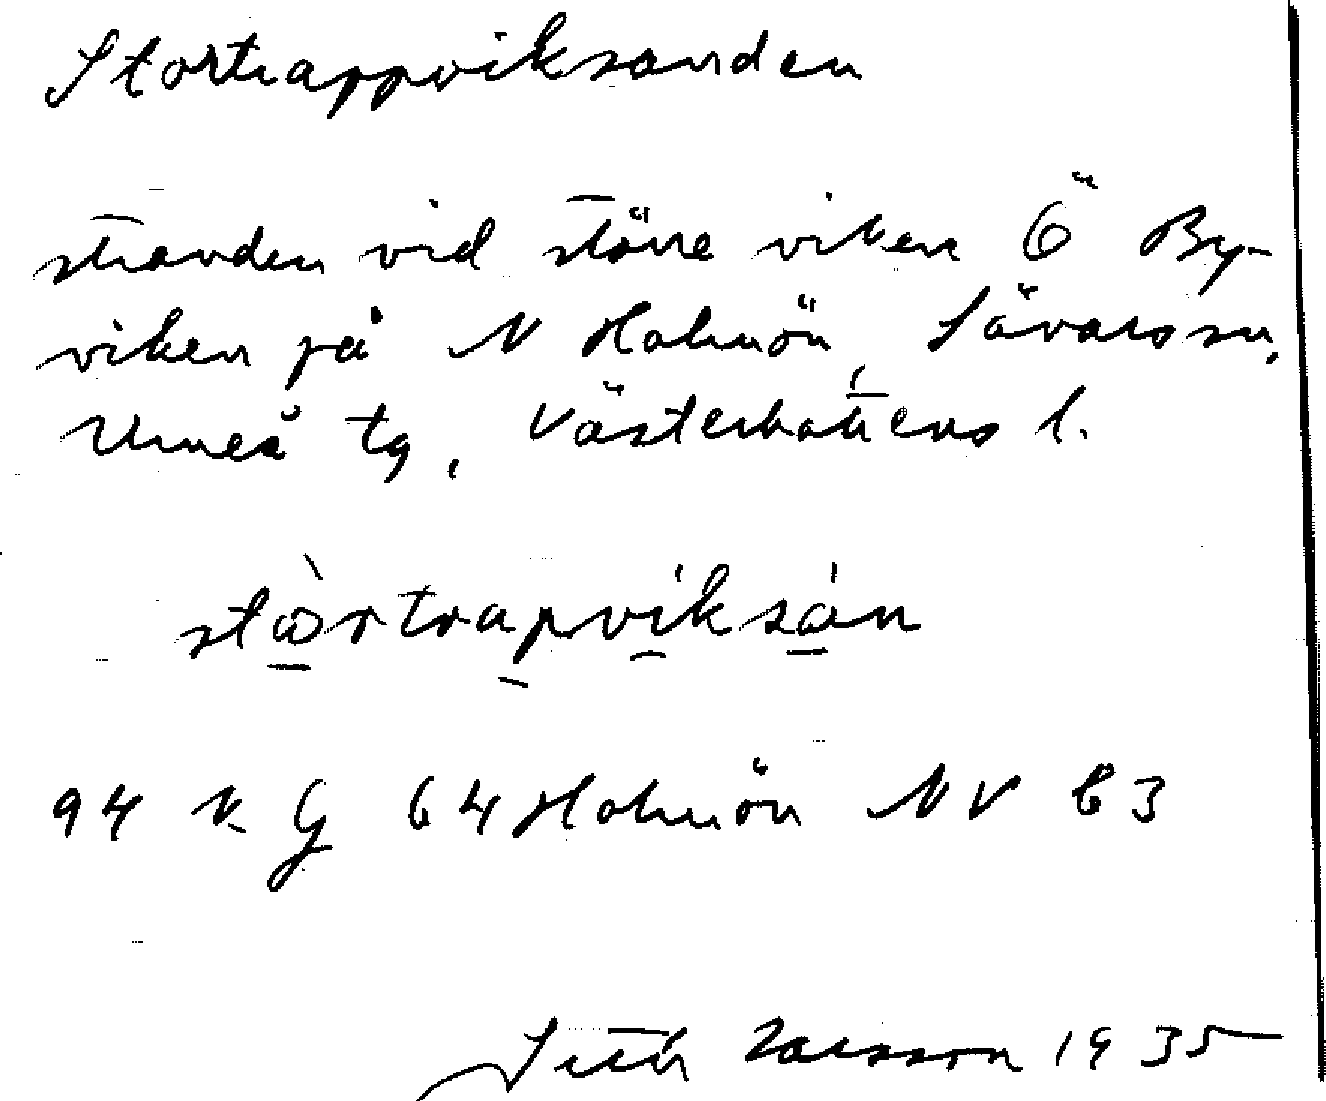 Stortrappviksanden
stranden vid större viken Ö By-
viken på N Holmön, Sävars sn,
Umeå tg, Västerbottens l.
stòrtrapvíksán
94 K G 64 Holmön NV b3
Larsson 1935